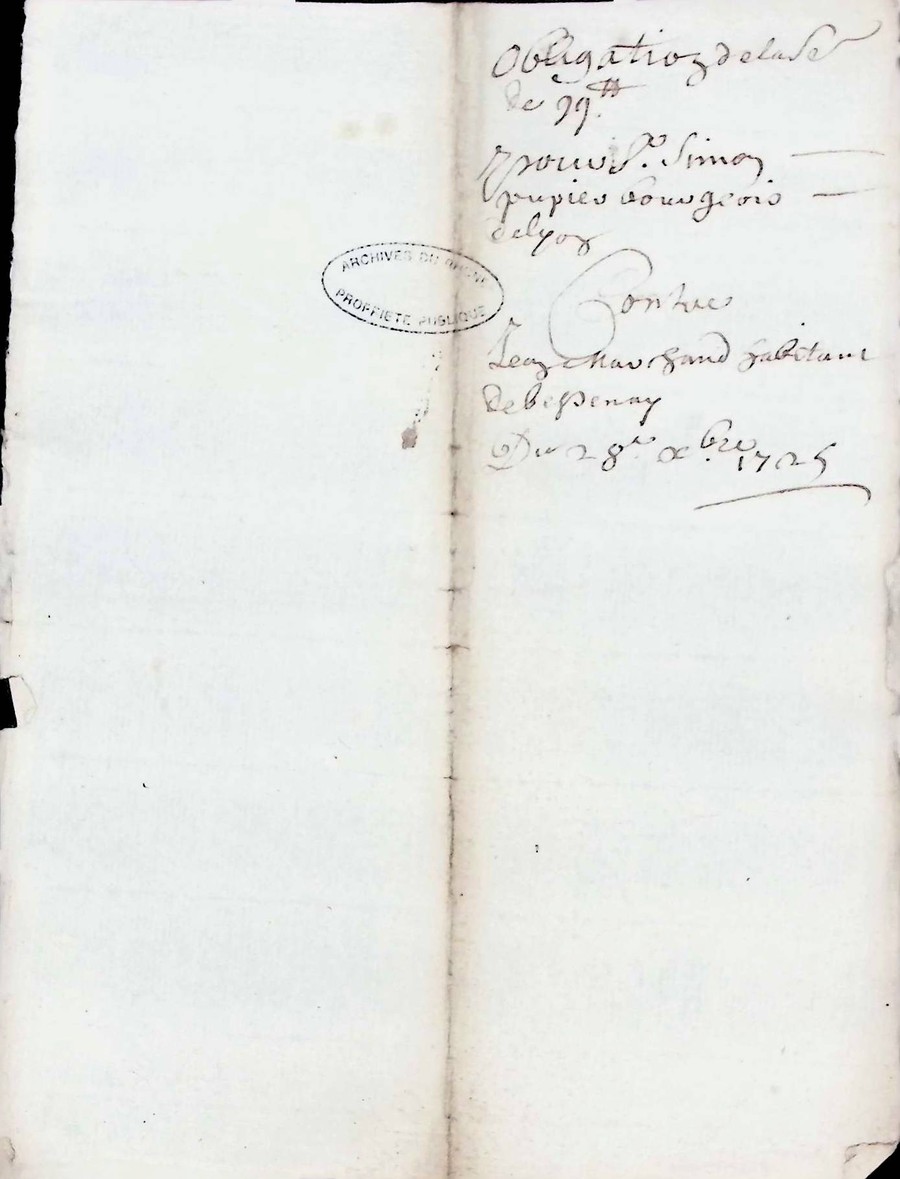 Obligation de la Se
de 99.tt
pour Sr. Simon
pupier bourgeois
de lyon
Contre
Jean Marchand habitant
de bessenay
Du 28e xbre 1725
ARCHIVES DU RHONE
PROPRIETE PUBLIQUE